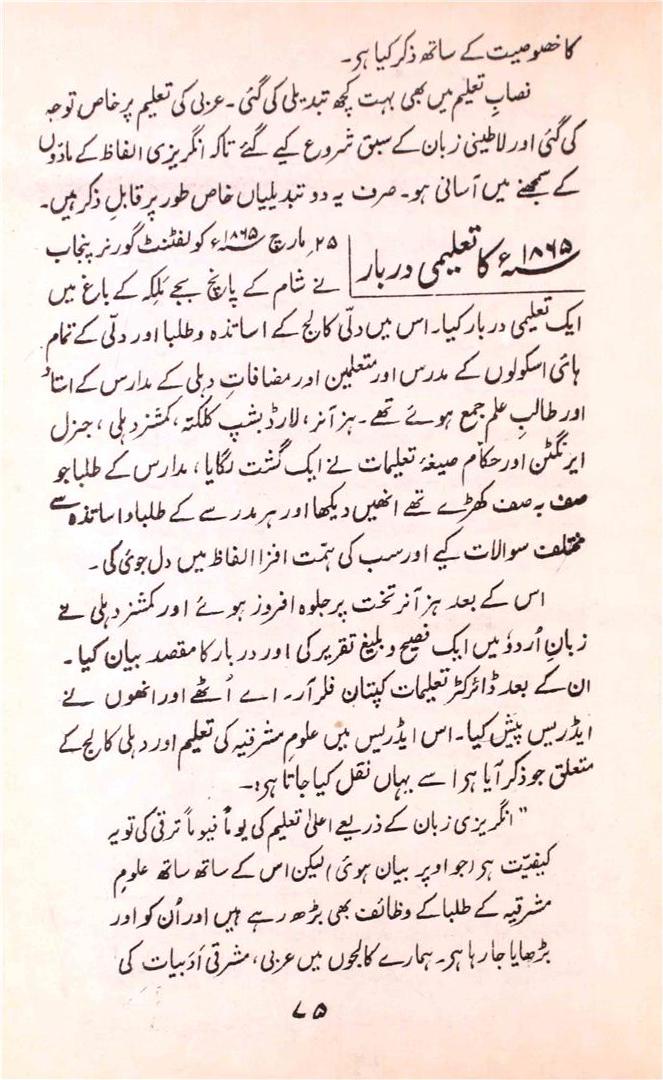 کا خصوصیت کے ساتھ ذکر کیا ہی۔
نصابِ تعلیم میں بھی بہت کچھ تبدیلی کی گئی۔ عربی کی تعلیم پر خاص توجہ
کی گئی اور لاطینی زبان کے سبق شروع کیے گئے تاکہ انگریزی الفاظ کے مادّوں
کے سمجھنے میں آسانی ہو۔ صرف یہ دو تبدیلیاں خاص طور پر قابلِ ذکر ہیں۔
۱۸۶۵ء کا تعلیمی دربار
۲۵ مارچ ۱۸۶۵ء کو لفٹنٹ گورنر پنجاب
نے شام کے پانچ بجے مَلِکہ کے باغ میں
ایک تعلیمی دربار کیا۔ اس میں دلّی کالج کے اساتذہ و طلبا اور دلّی کے تمام
ہائی اسکولوں کے مدرس اور متعلمین اور مضافاتِ دہلی کے مدارس کے استاد
اور طالبِ علم جمع ہوئے تھے۔ ہز آنر، لارڈ بشپ کلکتہ، کمشنر دہلی، جنرل
ایرنگٹن اور حکام صیغۂ تعلیمات نے ایک گشت لگایا، مدارس کے طلبا جو
صف بہ صف کھڑے تھے انھیں دیکھا اور ہر مدرسے کے طلبا و اساتذہ سے
مختلف سوالات کیے اور سب کی ہمّت افزا الفاظ میں دل جوئی کی۔
اس کے بعد ہز آنر تخت پر جلوہ افروز ہوئے اور کمشنر دہلی نے
زبانِ اُردؤ میں ایک فصیح و بلیغ تقریر کی اور دربار کا مقصد بیان کیا۔
ان کے بعد ڈائرکٹر تعلیمات کپتان فلر آر۔ اے اُٹھے اور انھوں نے
ایڈریس پیش کیا۔ اس ایڈریس میں علومِ مشرقیہ کی تعلیم اور دہلی کالج کے
متعلق جو ذکر آیا ہی اسے یہاں نقل کیا جاتا ہی:۔
”انگریزی زبان کے ذریعے اعلیٰ تعلیم کی یوماً فیوماً ترقی کی تو یہ
کیفیّت ہی (جو اوپر بیان ہوئی) لیکن اس کے ساتھ ساتھ علومِ
مشرقیہ کے طلبا کے وظائف بھی بڑھ رہے ہیں اور اُن کو اور
بڑھایا جا رہا ہی۔ ہمارے کالجوں میں عربی، مشرقی اَدبیات کی
۷۵